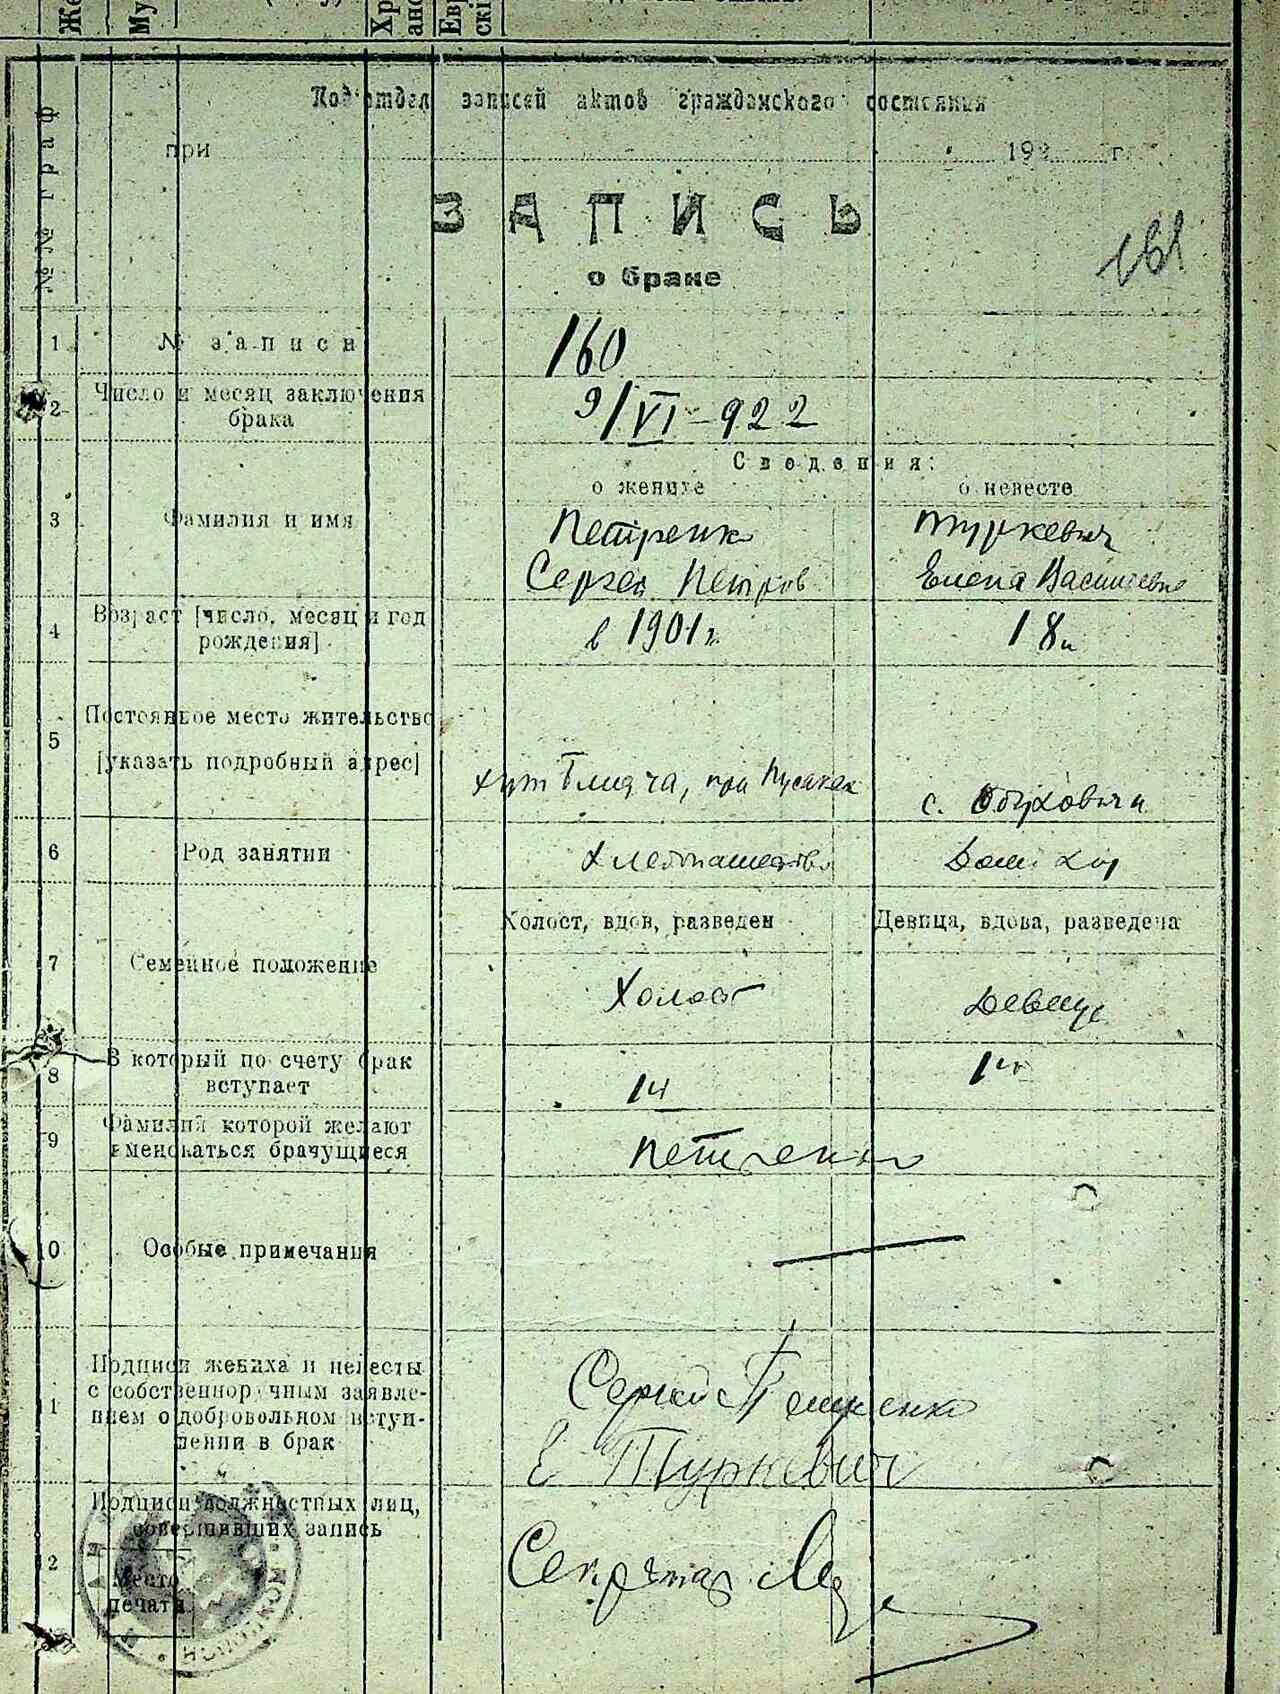 Же
Му
Подотдел записей актов гражданского состояния
при 192 г.
№№ граф
ЗАПИСЬ
о браке
161
1 № записи 160
2 Число и месяц заключения
брака 9/VI-922
Сведения:
о женихе о невесте
3 Фамилия и имя Петренк Туркевич
Сергей Петров Елена Васильевна
4 Возраст [число, месяц и год
рождения] в 1901 г. 18 л
5 Постоянное место жительство
[указать подробный адрес]
хут при с. Обуховичи
6 Род занятий Хлебопашество Дом хоз
Холост, вдов, разведен Девица, вдова, разведена
7 Семейное положение Холост Девица
8 В который по счету брак
вступает 1й 1й
9 Фамилия которой желают
именоваться брачущиеся Петренко
10 Особые примечания
1 Подписи жениха и невесты
с собственноручным заявле-
нием о добровольном вступ-
лении в брак
Сергей Петренко
Е Туркевич
2 Подписи должностных лиц,
совершивших запись
Место
печати
Секретар